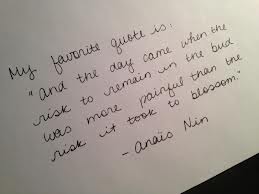 My favorite quote is:
"and the day came when the
risk to remain in the bud
was more painful than the
risk it took to blossom."
- Anaïs Nin